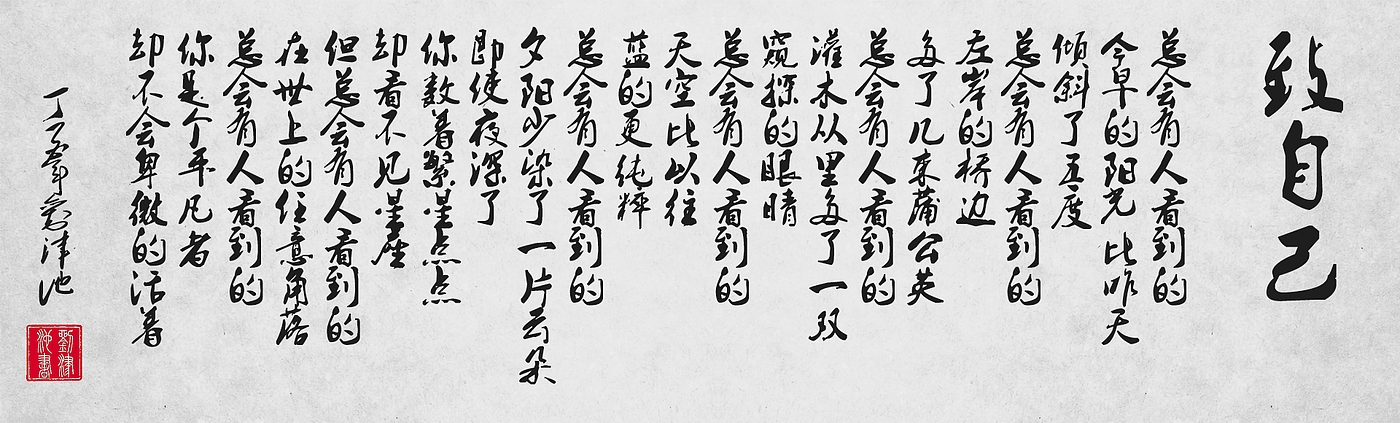 致自己
总会有人看到的
今早的阳光比昨天
倾斜了五度
总会有人看到的
左岸的桥边
多了几束蒲公英
总会有人看到的
灌木从里多了一双
窥探的眼睛
总会有人看到的
天空比以往
蓝的更纯粹
总会有人看到的
夕阳少染了一片云朵
即使夜深了
你数着繁星点点
却看不见星座
但总会有人看到的
在世上的任意角落
总会有人看到的
你是个平凡者
却不会卑微的活着
丁酉年劉津池
劉津
池書